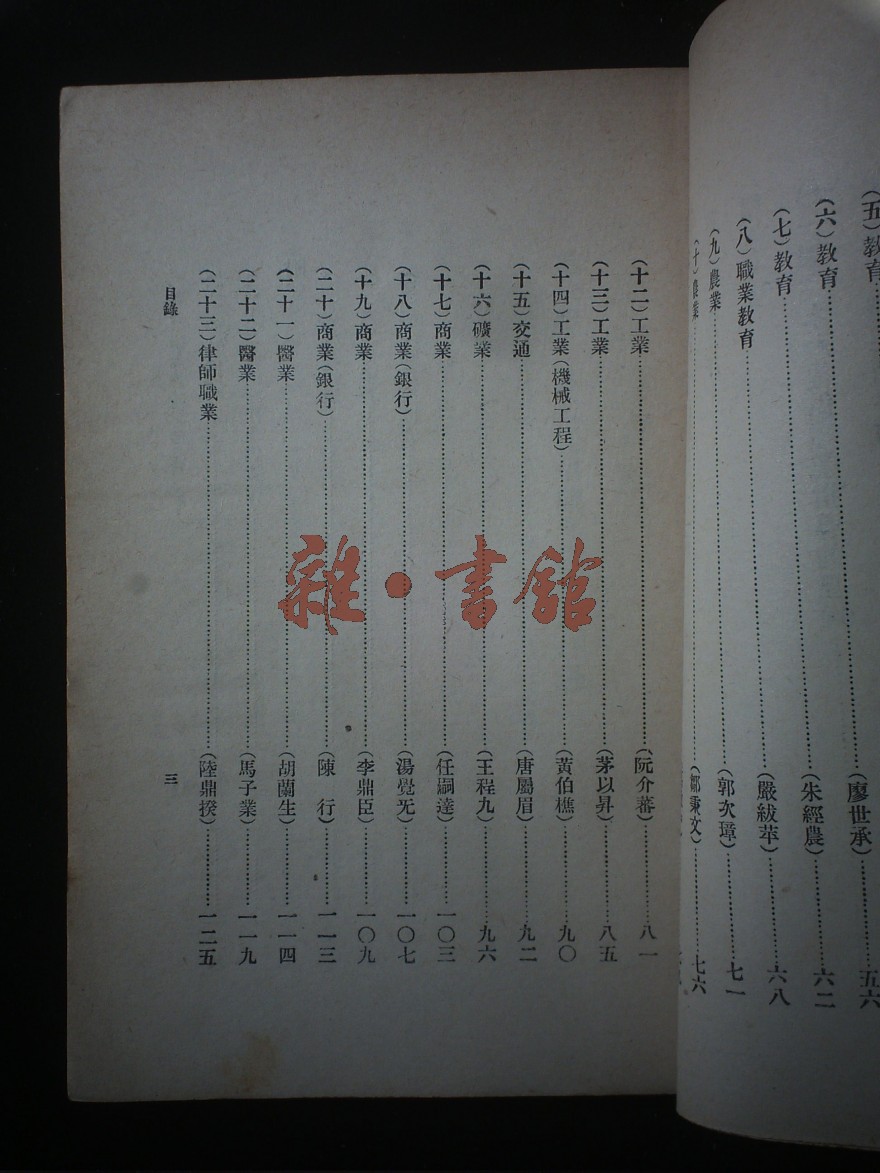 (五)教育……(廖世承)……五六
(六)教育……(朱經農)……六二
(七)教育……(嚴紱苹)……六八
(八)職業教育……(郭次璋)……七一
(九)農業……(鄒秉文)……七六
(十)農業……
(十二)工業……(阮介蕃)……八一
(十三)工業……(茅以昇)……八五
(十四)工業(機械工程)……(黃伯樵)……九〇
(十五)交通……(唐屬眉)……九二
(十六)礦業……(王程九)……九六
(十七)商業……(任嗣達)……一〇三
(十八)商業(銀行)……(湯覺旡)……一〇七
(十九)商業……(李鼎臣)……一〇九
(二十)商業(銀行)……(陳 行)……一一三
(二十一)醫業……(胡蘭生)……一一四
(二十二)醫業……(馬子業)……一一九
(二十三)律師職業……(陸鼎揆)……一二五
目錄
三
雜·書館